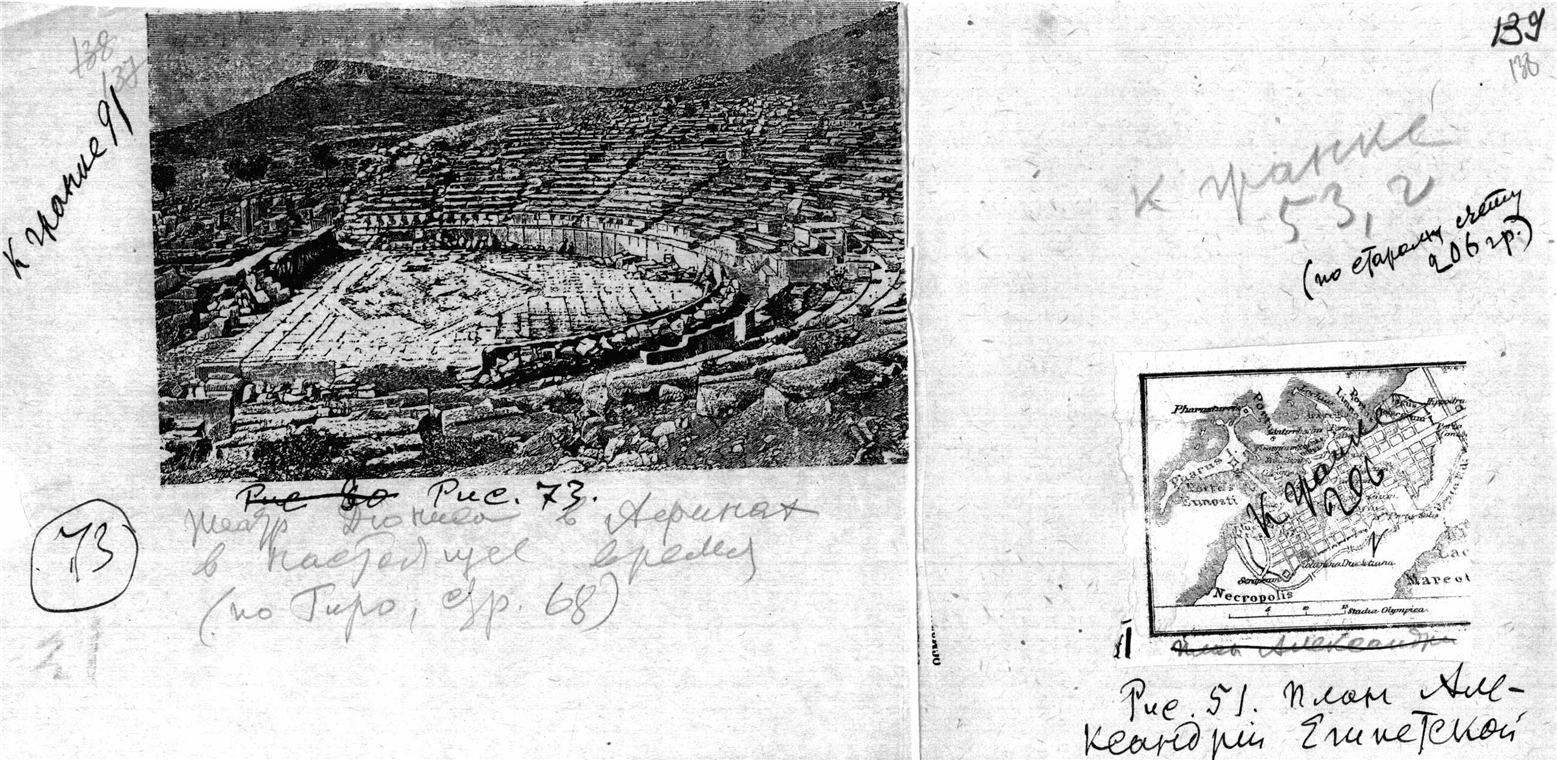 138
137
К гранке 91
Рис 80 Рис. 73.
Театр Диониса в Афинах
в настоящее время
(по Гиро, стр. 68)
73
139
138
К гранке
53, 2
(по старому счету
206 гр.)
Pharus I.
Eunosti
К гранке
206
Serapeum
Necropolis
Columna Diocletiana
Lac
Mareot
Stadia Olympica
План Александр
Рис. 51. План Але-
ксандрии Египетской